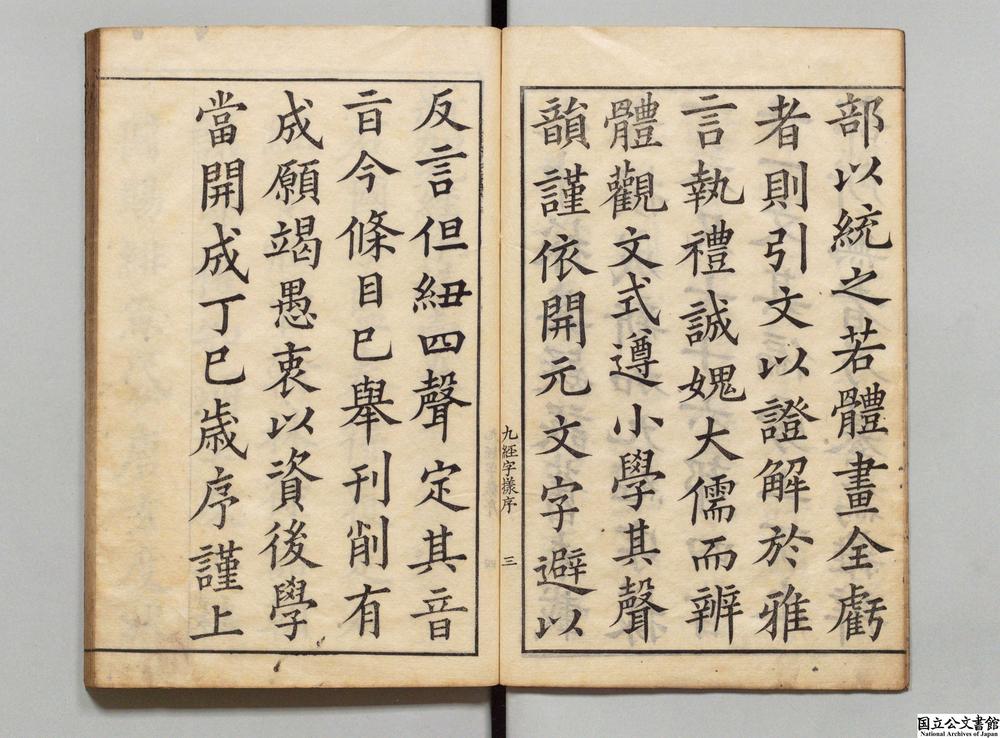 部以統之若體畫全虧
者則引文以證解於雅
言執禮誠媿大儒而辨
體觀文式遵小學其聲
韻謹依開元文字避以
九經字樣序 三
反言但紐四聲定其音
旨今條目已舉刊削有
成願竭愚衷以資後學
當開成丁巳歲序謹上
国立公文書館
National Archives of Japan